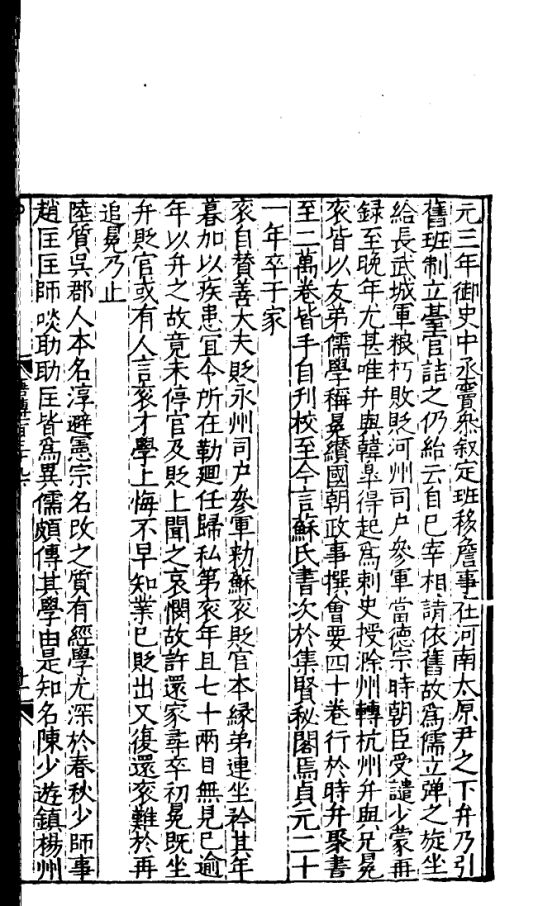 元三年御史中丞竇叅叙定班移詹事在河南太原尹之下弁乃引
舊班制立臺官詰之仍紿云自巳宰相請依舊故爲儒立彈之旋坐
給長武城軍粮朽敗貶河州司户參軍當德宗時朝臣受譴少蒙再
録至晚年尤甚唯弁與韓臯得起爲刺史授滁州轉杭州弁與兄冕
衮皆以友弟儒學稱冕纘國朝政事撰會要四十卷行於時弁聚書
至二萬卷皆手自刊校至今言蘇氏書次於集賢秘閣焉貞元二十
一年卒于家
衮自贊善大夫貶永州司户參軍勑蘇衮貶官本縁弟連坐矜其年
暮加以疾患宜令所在勒廻任歸私第衮年且七十兩目無見巳逾
年以弁之故竟未停官及貶上聞之哀憫故許還家尋卒初冕既坐
弁貶官或有人言衮才學上悔不早知業巳貶出又復還衮難於再
追冕乃止
陸質吳郡人本名淳避憲宗名改之質有經學尤深於春秋少師事
趙匡匡師啖助助匡皆爲異儒頗傳其學由是知名陳少遊鎮楊州